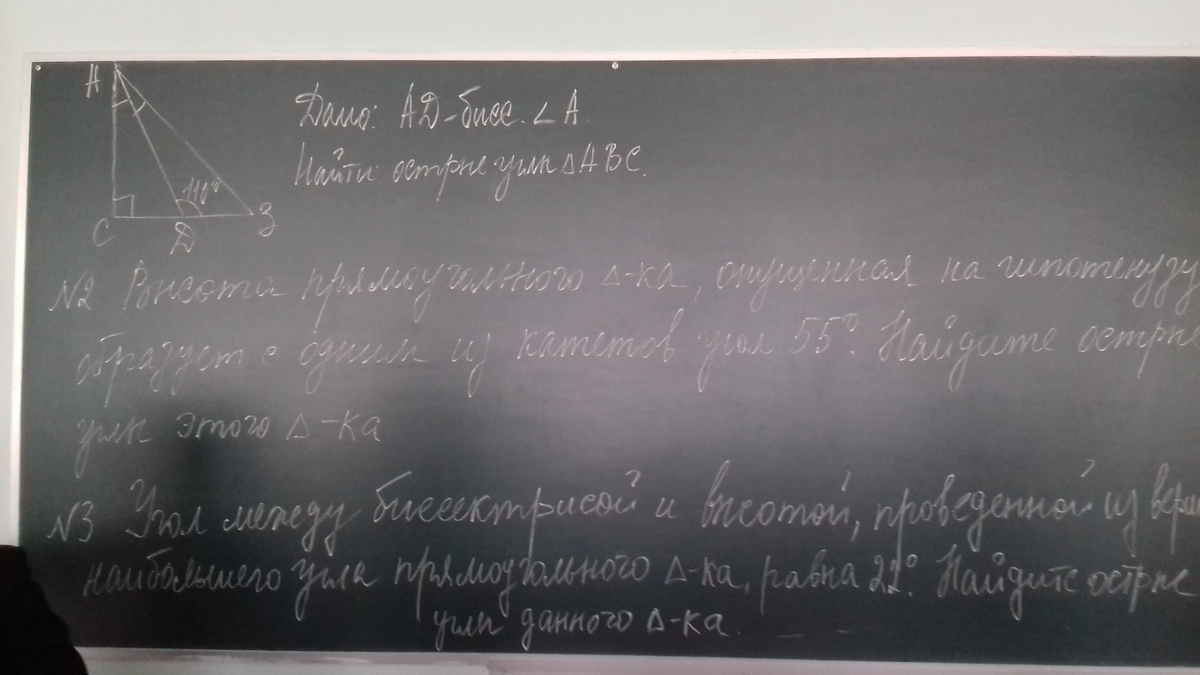 A
C
D
B
110°
Дано: AD-бисс. ∠A.
Найти: острые углы ΔABC.
№2 Высота прямоугольного Δ-ка, опущенная на гипотенузу
образует с одним из катетов угол 55°. Найдите острые
углы этого Δ-ка
№3 Угол между биссектрисой и высотой, проведенной из верш
наибольшего угла прямоугольного Δ-ка, равна 22°. Найдите острые
углы данного Δ-ка.